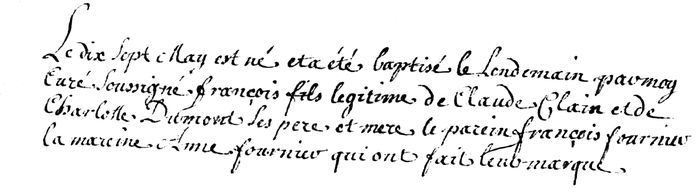 Le dix sept May est né et a été baptisé le Lendemain par moy
Curé Soussigné françois fils legitime de Claude Clain et de
Charlotte Dumont Ses pere et mere le parein françois fournier
la mareine Anne fournier qui ont fait leur marque